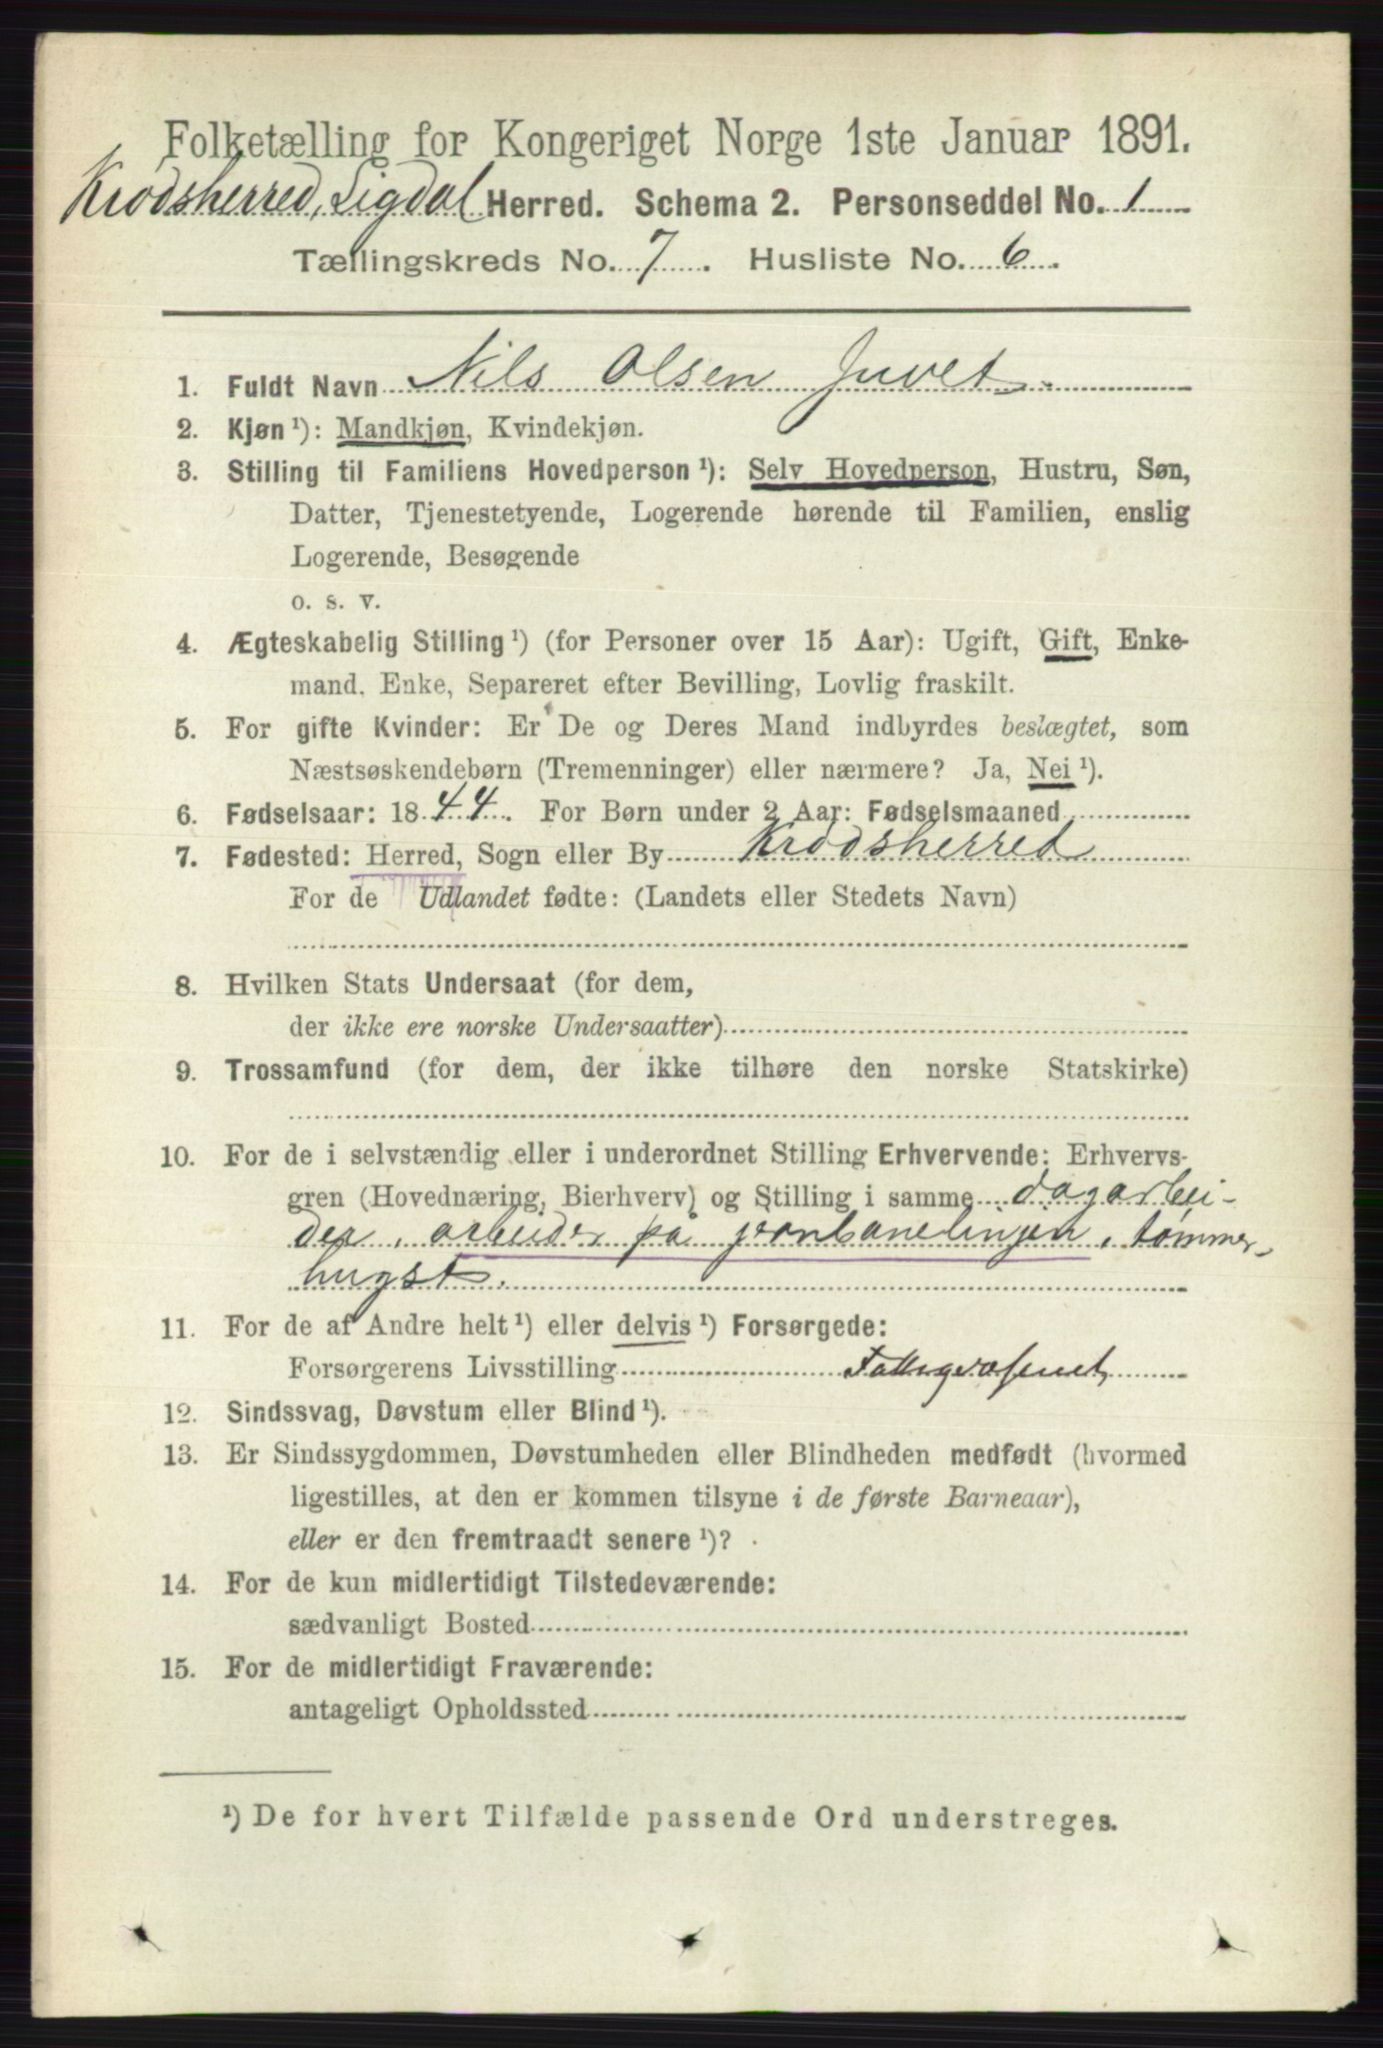 Folketælling for Kongeriget Norge 1ste Januar 1891.
Krødsherred, Sigdal Herred. Schema 2. Personseddel No. 1
Tællingskreds No. 7. Husliste No. 6.
1. Fuldt Navn Nils Olsen Juvet
2. Kjøn ¹): Mandkjøn, Kvindekjøn.
3. Stilling til Familiens Hovedperson ¹): Selv Hovedperson, Hustru, Søn,
Datter, Tjenestetyende, Logerende hørende til Familien, enslig
Logerende, Besøgende
o. s. v.
4. Ægteskabelig Stilling ¹) (for Personer over 15 Aar): Ugift, Gift, Enke-
mand, Enke, Separeret efter Bevilling, Lovlig fraskilt.
5. For gifte Kvinder: Er De og Deres Mand indbyrdes beslægtet, som
Næstsøskendebørn (Tremenninger) eller nærmere? Ja, Nei ¹).
6. Fødselsaar: 1844. For Børn under 2 Aar: Fødselsmaaned
7. Fødested: Herred, Sogn eller By Krødsherred
For de Udlandet fødte: (Landets eller Stedets Navn)
8. Hvilken Stats Undersaat (for dem,
der ikke ere norske Undersaatter)
9. Trossamfund (for dem, der ikke tilhøre den norske Statskirke)
10. For de i selvstændig eller i underordnet Stilling Erhvervende: Erhvervs-
gren (Hovednæring, Bierhverv) og Stilling i samme dagarbei-
der, arbeider på jernbanelinjen, tømmer-
hugst.
11. For de af Andre helt ¹) eller delvis ¹) Forsørgede:
Forsørgerens Livsstilling Fattigvæsenet
12. Sindssvag, Døvstum eller Blind ¹).
13. Er Sindssygdommen, Døvstumheden eller Blindheden medfødt (hvormed
ligestilles, at den er kommen tilsyne i de første Barneaar),
eller er den fremtraadt senere ¹)?
14. For de kun midlertidigt Tilstedeværende:
sædvanligt Bosted
15. For de midlertidigt Fraværende:
antageligt Opholdssted
¹) De for hvert Tilfælde passende Ord understreges.